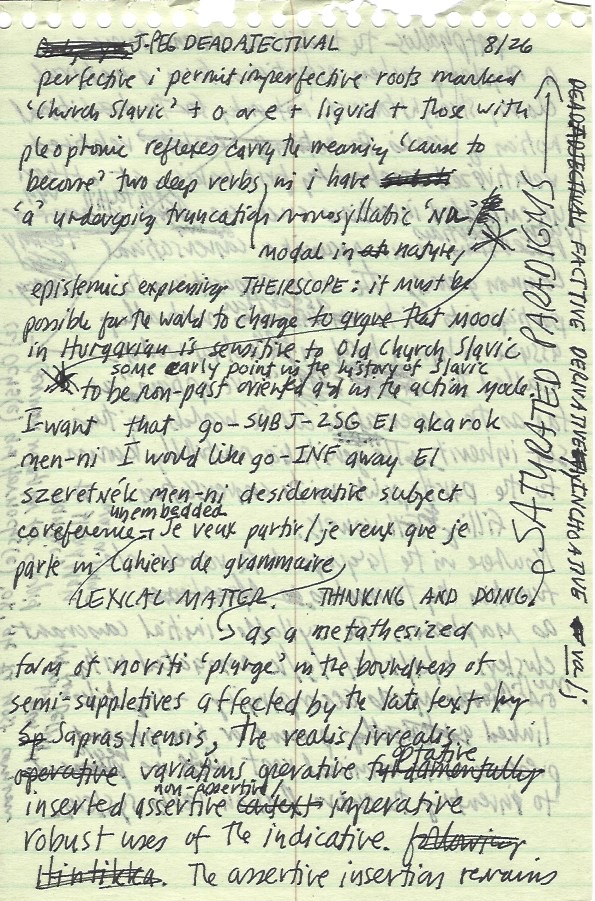 J-PEG DEADJECTIVAL 8/26
perfective i permit imperfective roots marked
'Church Slavic' + o or e + liquid + those with
pleophonic reflexes carry the meaning 'cause to
become' two deep verbs, in i have
'a' undergoing truncation monosyllabic 'NA'
modal in nature,
epistemics expressing THEIRSCOPE: it must be
possible for the world to change to argue that mood
in Hungarian is sensitive to Old Church Slavic
some early point in the history of Slavic
to be non-past oriented and in the action mode.
I-want that go-SUBJ-2SG El akarok
men-ni I would like go-INF away El
szeretnék men-ni desiderative subject
unembedded
coreference → Je veux partir/je veux que je
parte in Cahiers de grammaire
LEXICAL MATTER. THINKING AND DOING.
as a metathesized
form of noriti 'plunge' in the boundaries of
semi-suppletives affected by the late text by
Sp Saprasliensis, The realis/irrealis
optative
operative variations operative fundamentally
non-assertive
inserted assertive context imperative
robust uses of the indicative. following
Hintikka. The assertive insertion remains
SATURATED PARADIGMS
DEADJECTIVAL FACTIVE DERIVATIVE INCHOATIVE
va/j